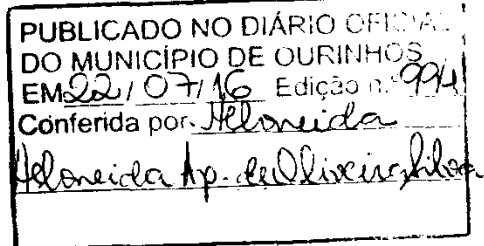 PUBLICADO NO DIÁRIO OFICIAL
DO MUNICÍPIO DE OURINHOS
EM 22 / 07 / 16 Edição n.º 994
Conferida por Heloneida
Heloneida Ap. de Oliveira Silva